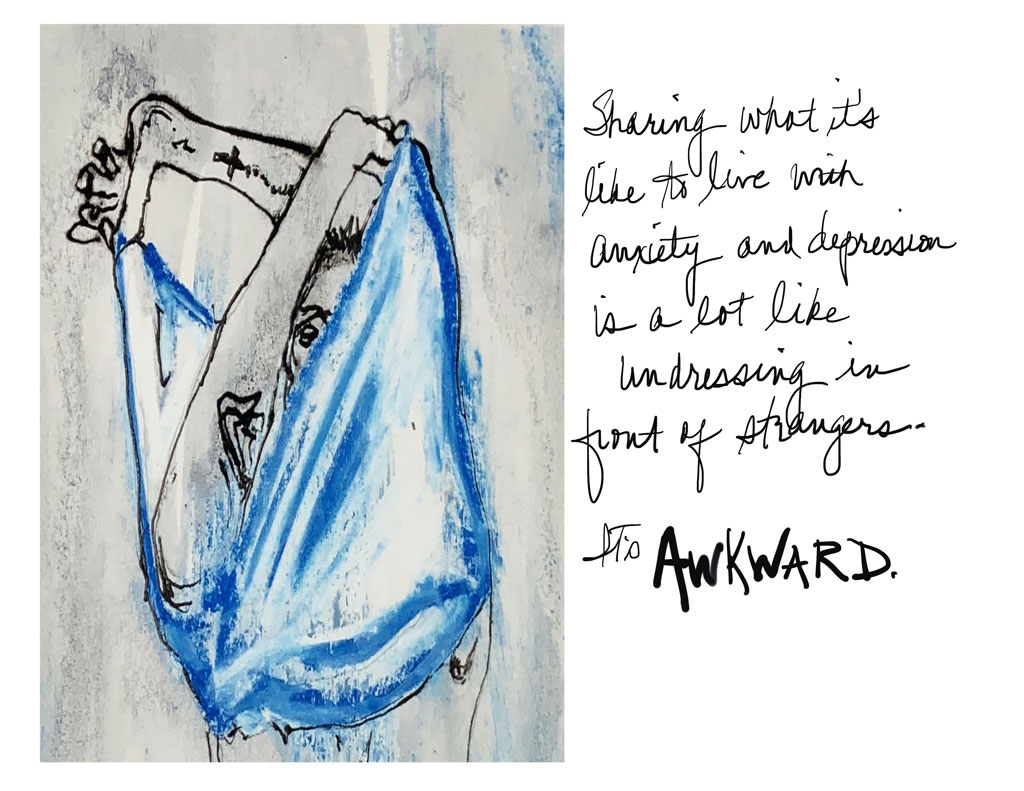 Sharing what it's
like to live with
anxiety and depression
is a lot like
undressing in
front of strangers--
It's AWKWARD.